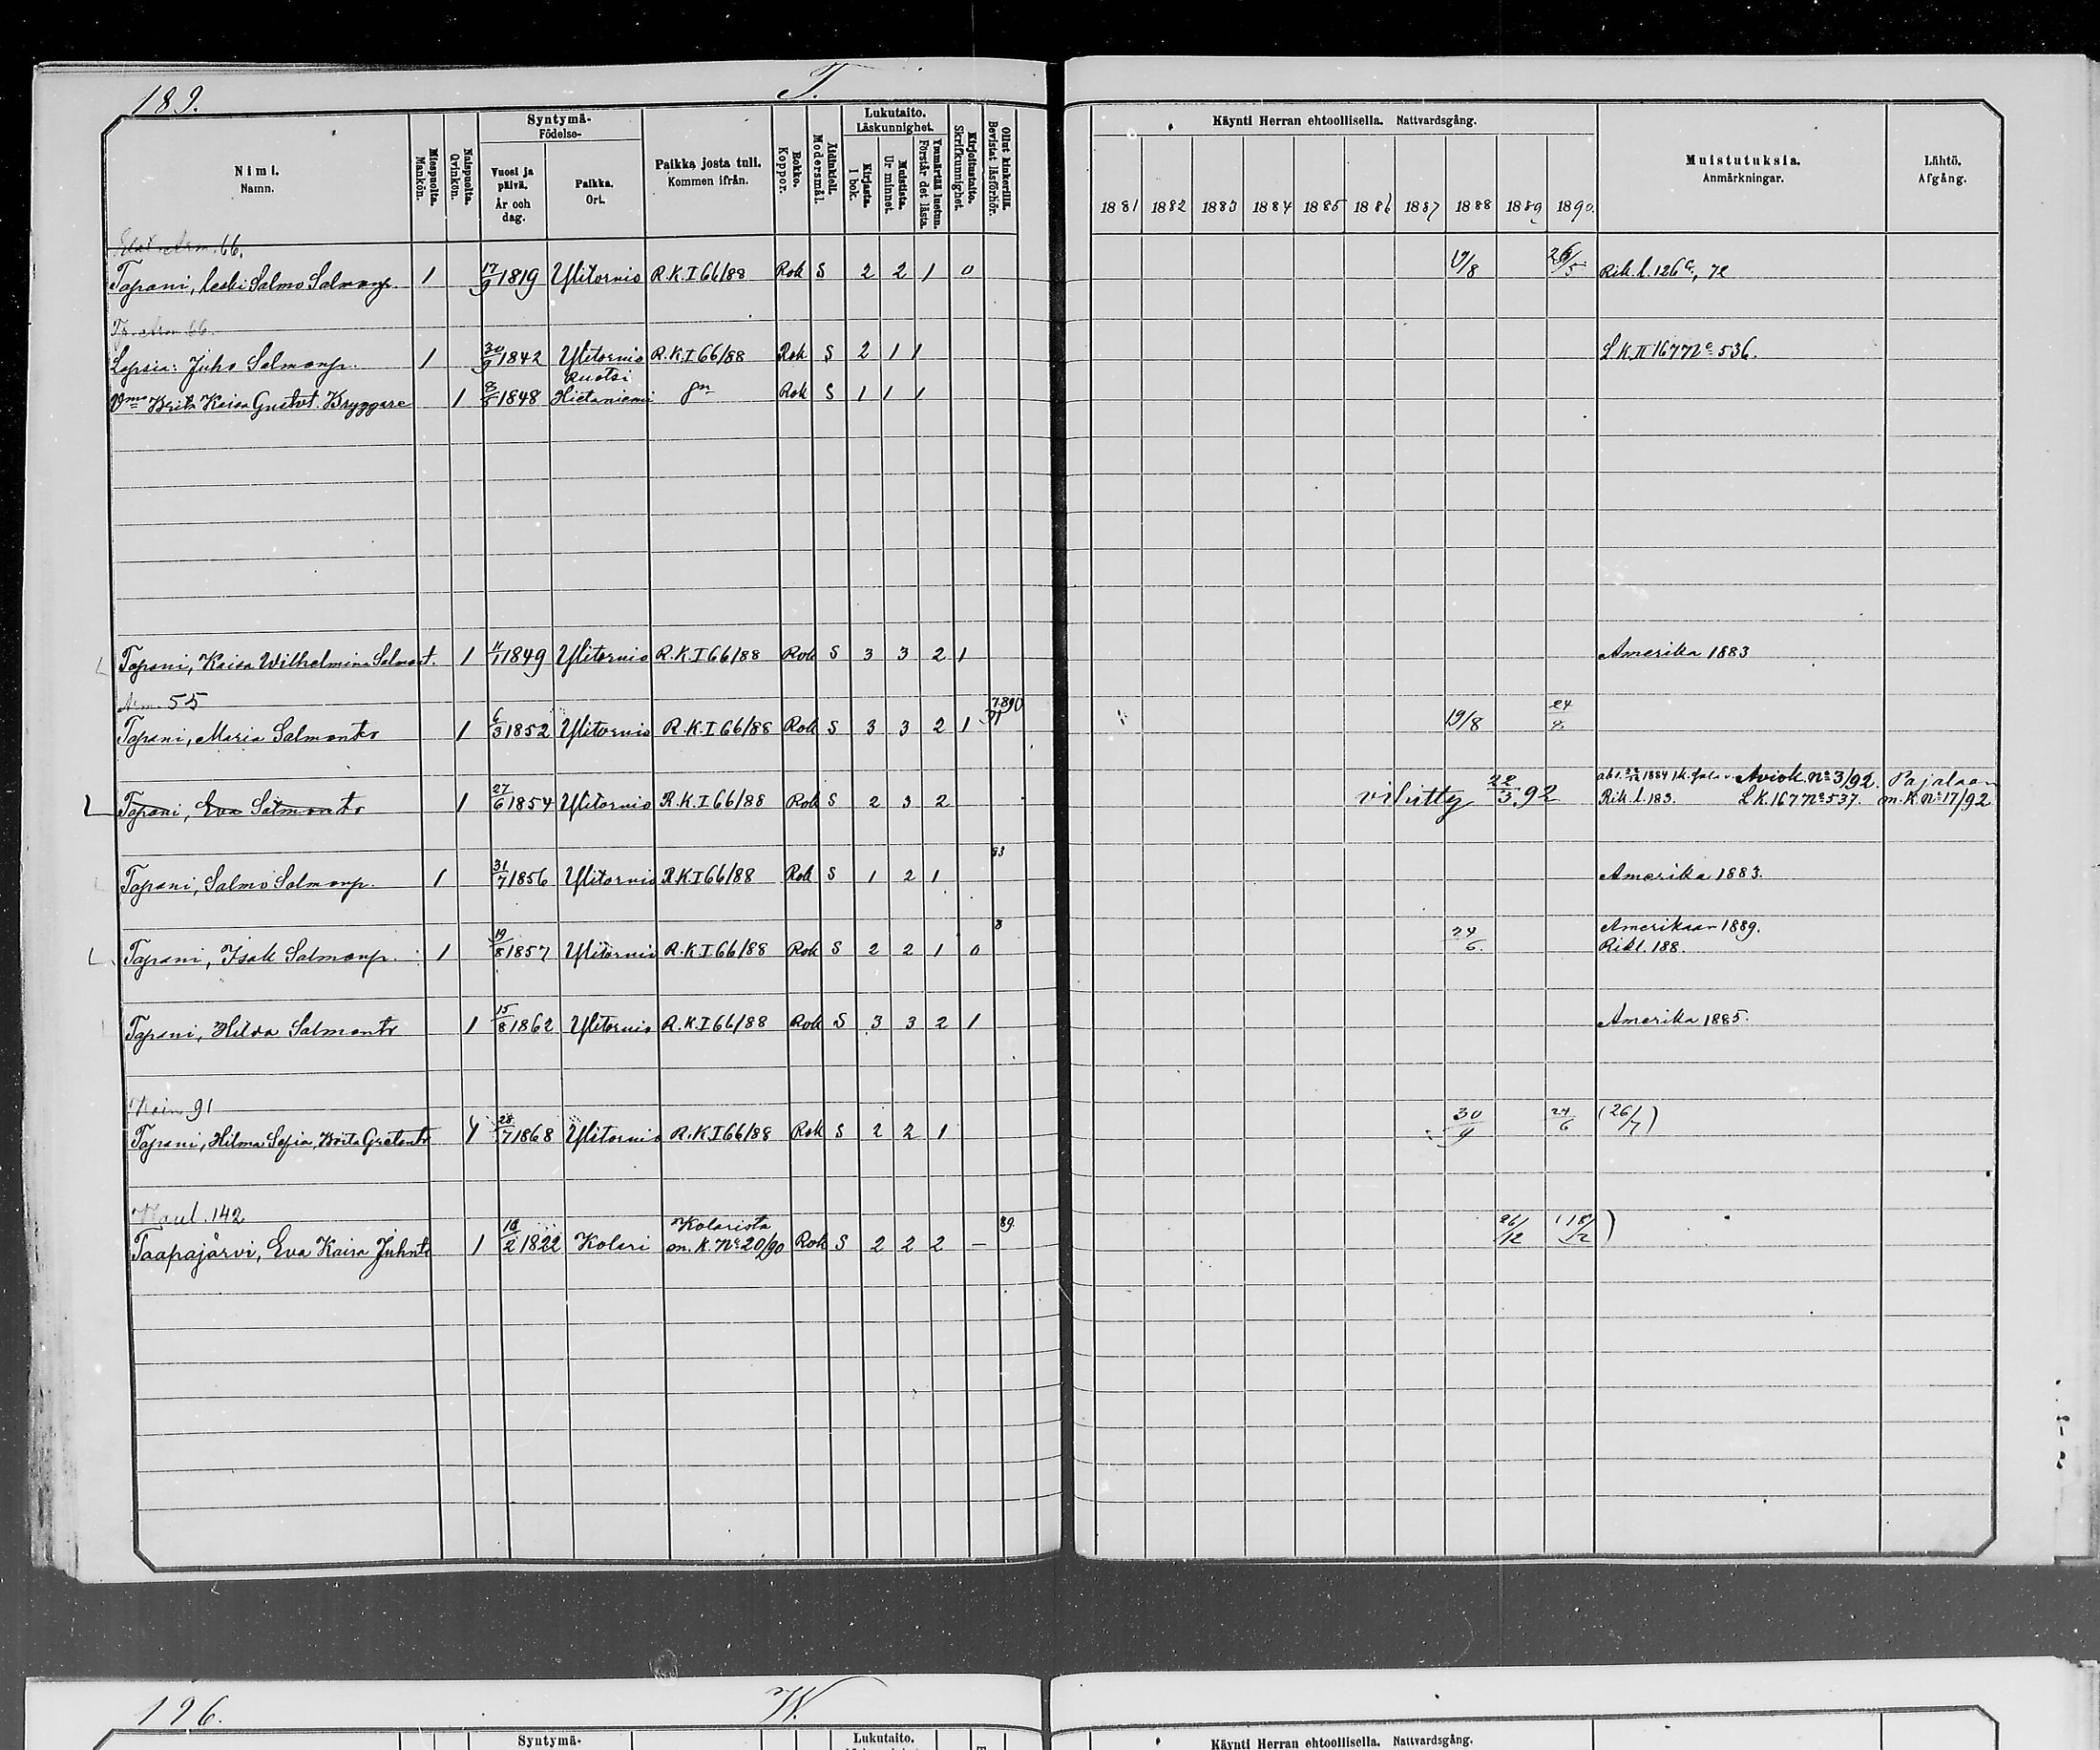 189.
T.
Nimi.
Namn.
Miespuolta.
Mankön.
Naispuolta.
Qvinkön.
Syntymä-
Födelse-
Vuosi ja
päivä.
År och
dag.
Paikka.
Ort.
Paikka josta tuli.
Kommen ifrån.
Rokko.
Koppor.
Äidinkieli.
Modersmål.
Lukutaito.
Läskunnighet.
Kirjasta.
I bok.
Muistista.
Ur minnet.
Ymmärtää luetun.
Förstår det lästa.
Kirjoitustaito.
Skrifkunnighet.
Ollut kinkerillä.
Bevistat läsförhör.
Käynti Herran ehtoollisella. Nattvardsgång.
1881 1882 1883 1884 1885 1886 1887 1888 1889 1890.
Muistutuksia.
Anmärkningar.
Lähtö.
Afgång.
66.
Tapani, leski Salmo Salmonp. 1 17/9 1819 Ylitornio R.K.I 66/88 Rok S 2 2 1 0 19/8 26/5 Rik. l. 126
66.
Lapsia: Juho Salmonp. 1 30/9 1842 Ylitornio R.K.I 66/88 Rok S 2 1 1 L K II 167 No 536.
Ruotsi
Vmo Brita Kaisa Gustvt. Bryggare 1 1848 Hietaniemi Rok S 1 1 1
Tapani, Kaisa Wilhelmina Salmont. 1 1849 Ylitornio R.K.I 66/88 Rok S 3 3 2 1 Amerika 1883
55
Tapani, Maria Salmontr 1 6/3 1852 Ylitornio R.K.I 66/88 Rok S 3 3 2 1 19/8
Tapani, Eva Salmontr 1 27/6 1854 Ylitornio R.K.I 66/88 Rok S 2 3 2 vihitty 22/3.92 1884 Aviok. No 3/92. Pajalaan
Rik. l. 183. L K. 167 No 537. m. K. No 17/92
93
Tapani, Salmo Salmonp. 1 31/7 1856 Ylitornio R.K.I 66/88 Rok S 1 2 1 Amerika 1883.
8
Amerikaan 1889.
Tapani, Isak Salmonp. 1 19/8 1857 Ylitornio R.K.I 66/88 Rok S 2 2 1 0 24/6. Rikl. 188.
Tapani, Hilda Salmontr 1 15/8 1862 Ylitornio R.K.I 66/88 Rok S 3 3 2 1 Amerika 1885.
91
Tapani, Hilma Sofia, Brita Gretantr 1 28/7 1868 Ylitornio R.K.I 66/88 Rok S 2 2 1 30/9 24/6 (26/7)
142
Kolarista 89.
Taapajärvi, Eva Kaisa Juhntr 1 1822 Kolari m. K. No 20/90 Rok S 2 2 2 — 26/12 (18/12)
196.
W.
Syntymä-
Lukutaito.
Käynti Herran ehtoollisella. Nattvardsgång.